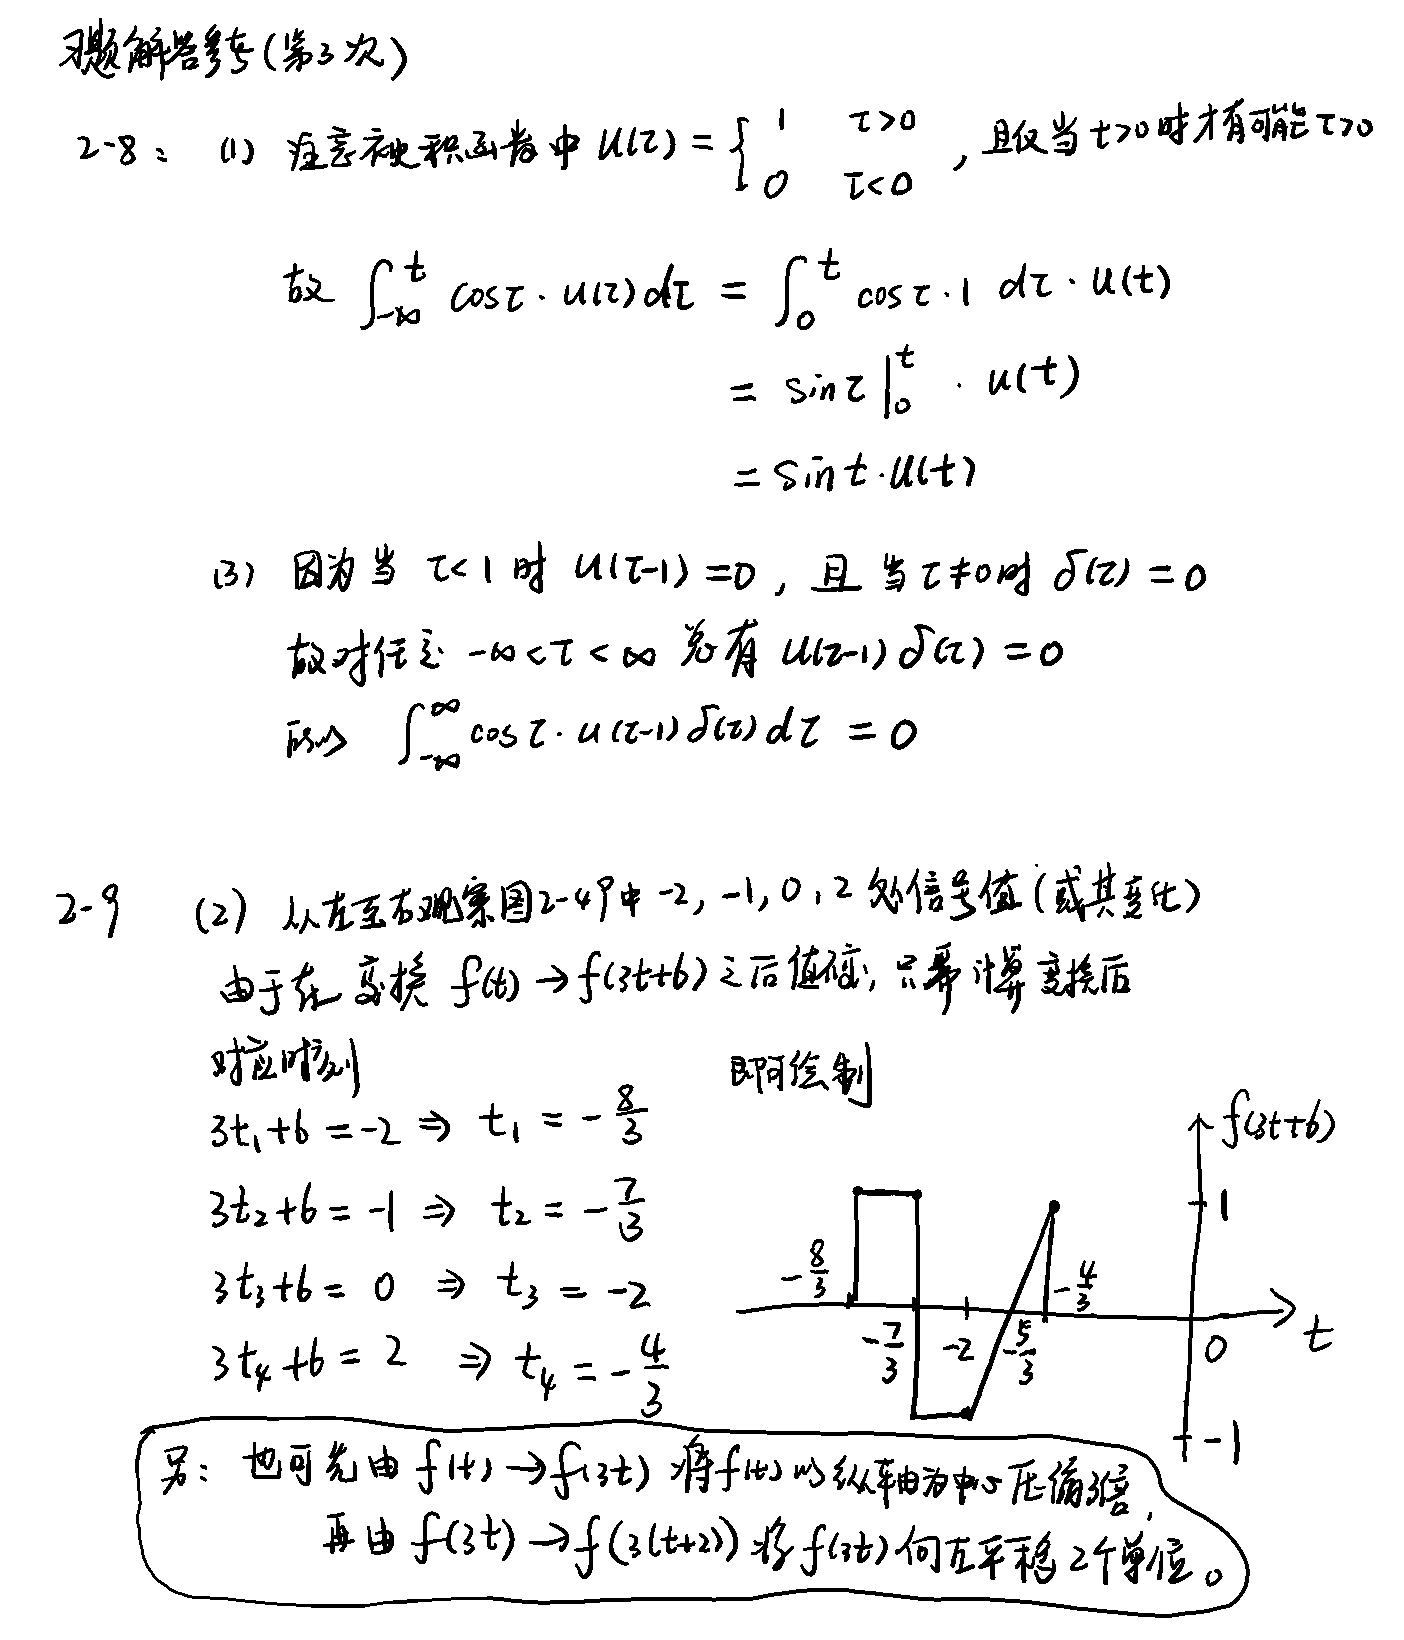 习题解答参考(第3次)
2-8: (1) 注意被积函数中 u(τ) = { 1 τ>0 , 且仅当 t>0时才有可能 τ>0
0 τ<0
故 ∫_{-∞}^{t} cosτ · u(τ)dτ = ∫_{0}^{t} cosτ · 1 dτ · u(t)
= sinτ |_{0}^{t} · u(t)
= sint · u(t)
(3) 因为当 τ<1 时 u(τ-1) = 0, 且当 τ≠0时 δ(τ) = 0
故对任意 -∞<τ<∞ 总有 u(τ-1) δ(τ) = 0
所以 ∫_{-∞}^{∞} cosτ · u(τ-1) δ(τ) dτ = 0
2-9 (2) 从左至右观察图2-49中 -2, -1, 0, 2 处信号值(或其变化)
由于在变换 f(t) → f(3t+6) 之后值不变, 只需计算变换后
对应时刻
即可绘制
3t₁+6 = -2 ⇒ t₁ = -8/3
3t₂+6 = -1 ⇒ t₂ = -7/3
3t₃+6 = 0 ⇒ t₃ = -2
3t₄+6 = 2 ⇒ t₄ = -4/3
f(3t+6)
1
-8/3
-4/3
-7/3
-2
-5/3
0
t
-1
另: 也可先由 f(t) → f(3t) 将f(t)以纵轴为中心压缩3倍,
再由 f(3t) → f(3(t+2)) 将 f(3t) 向左平移 2个单位。